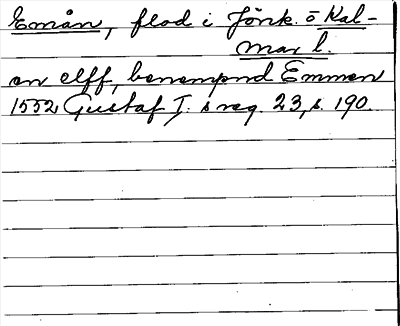 Emån, flod i Jönk. o Kal-
mar l.
en elff, benempnd Emmen
1552 Gustaf I:s reg. 23, s. 190.